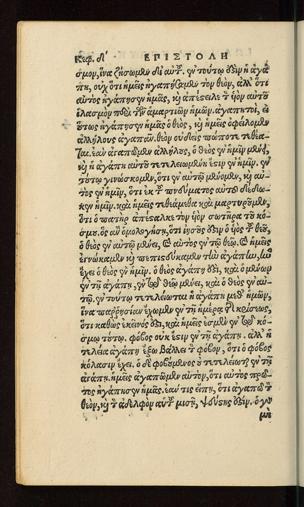 Κεφ. δ' ΕΠΙΣΤΟΛΗ
σμον, ἵνα ζήσωμεν δι' αὐτοῦ. ἐν τούτῳ ἐστὶν ἡ ἀγά
πη, οὐχ ὅτι ἡμεῖς ἠγαπήσαμεν τὸν θεὸν, ἀλλ' ὅτι
αὐτὸς ἠγάπησεν ἡμᾶς, καὶ ἀπέστειλε τὸν υἱὸν αὐτοῦ
ἱλασμὸν περὶ τῶν ἁμαρτιῶν ἡμῶν. ἀγαπητοὶ, εἰ
οὕτως ἠγάπησεν ἡμᾶς ὁ θεὸς, καὶ ἡμεῖς ὀφείλομεν
ἀλλήλους ἀγαπᾶν. θεὸν οὐδεὶς πώποτε τεθέα
ται. ἐὰν ἀγαπῶμεν ἀλλήλους, ὁ θεὸς ἐν ἡμῖν μένει,
καὶ ἡ ἀγάπη αὐτοῦ τετελειωμένη ἐστὶν ἐν ἡμῖν. ἐν
τούτῳ γινώσκομεν, ὅτι ἐν αὐτῷ μένομεν, καὶ αὐ
τὸς ἐν ἡμῖν, ὅτι ἐκ τοῦ πνεύματος αὐτοῦ δέδω
κεν ἡμῖν. καὶ ἡμεῖς τεθεάμεθα καὶ μαρτυροῦμεν,
ὅτι ὁ πατὴρ ἀπέσταλκε τὸν υἱὸν σωτῆρα τοῦ κό
σμου. ὃς ἂν ὁμολογήσῃ, ὅτι ἰησοῦς ἐστιν ὁ υἱὸς τοῦ θεοῦ,
ὁ θεὸς ἐν αὐτῷ μένει, καὶ αὐτὸς ἐν τῷ θεῷ. καὶ ἡμεῖς
ἐγνώκαμεν καὶ πεπιστεύκαμεν τὴν ἀγάπην, ἣν
ἔχει ὁ θεὸς ἐν ἡμῖν. ὁ θεὸς ἀγάπη ἐστὶ, καὶ ὁ μένων
ἐν τῇ ἀγάπῃ, ἐν τῷ θεῷ μένει, καὶ ὁ θεὸς ἐν αὐ
τῷ. ἐν τούτῳ τετελείωται ἡ ἀγάπη μεθ' ἡμῶν,
ἵνα παρρησίαν ἔχωμεν ἐν τῇ ἡμέρᾳ τῆς κρίσεως,
ὅτι καθὼς ἐκεῖνός ἐστι, καὶ ἡμεῖς ἐσμὲν ἐν τῷ κό
σμῳ τούτῳ. φόβος οὐκ ἔστιν ἐν τῇ ἀγάπῃ. ἀλλ' ἡ
τελεία ἀγάπη ἔξω βάλλει τὸν φόβον, ὅτι ὁ φόβος
κόλασιν ἔχει. ὁ δὲ φοβούμενος οὐ τετελείωται ἐν τῇ
ἀγάπῃ. ἡμεῖς ἀγαπῶμεν αὐτὸν, ὅτι αὐτὸς πρῶ
τος ἠγάπησεν ἡμᾶς. ἐάν τις εἴπῃ, ὅτι ἀγαπῶ τὸν
θεὸν, καὶ τὸν ἀδελφὸν αὐτοῦ μισῇ, ψεύστης ἐστίν. ὁ γὰρ
μὴ